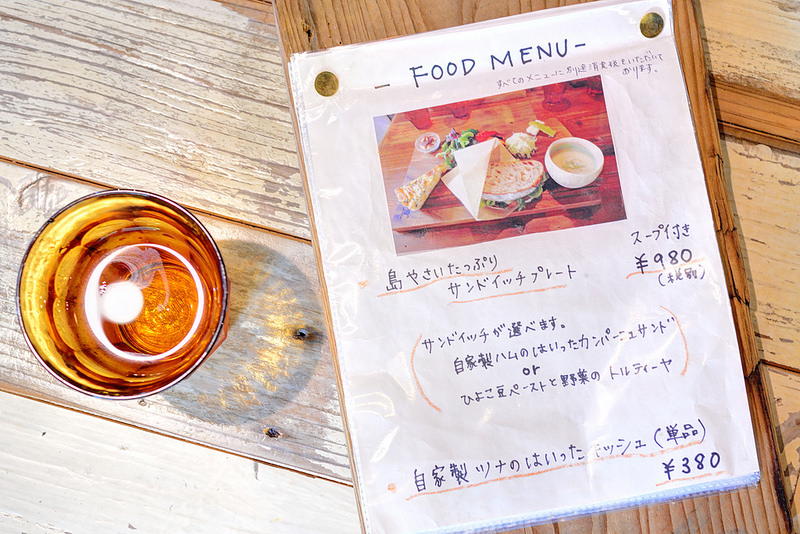 - FOOD MENU -
すべてのメニューに別途消費税をいただいて
おります。
島やさいたっぷり
サンドイッチプレート
スープ付き
¥980
(税別)
サンドイッチが選べます。
自家製ハムのはいったカンパーニュサンド
or
ひよこ豆ペーストと野菜のトルティーヤ
自家製ツナのはいったキッシュ(単品)
¥380